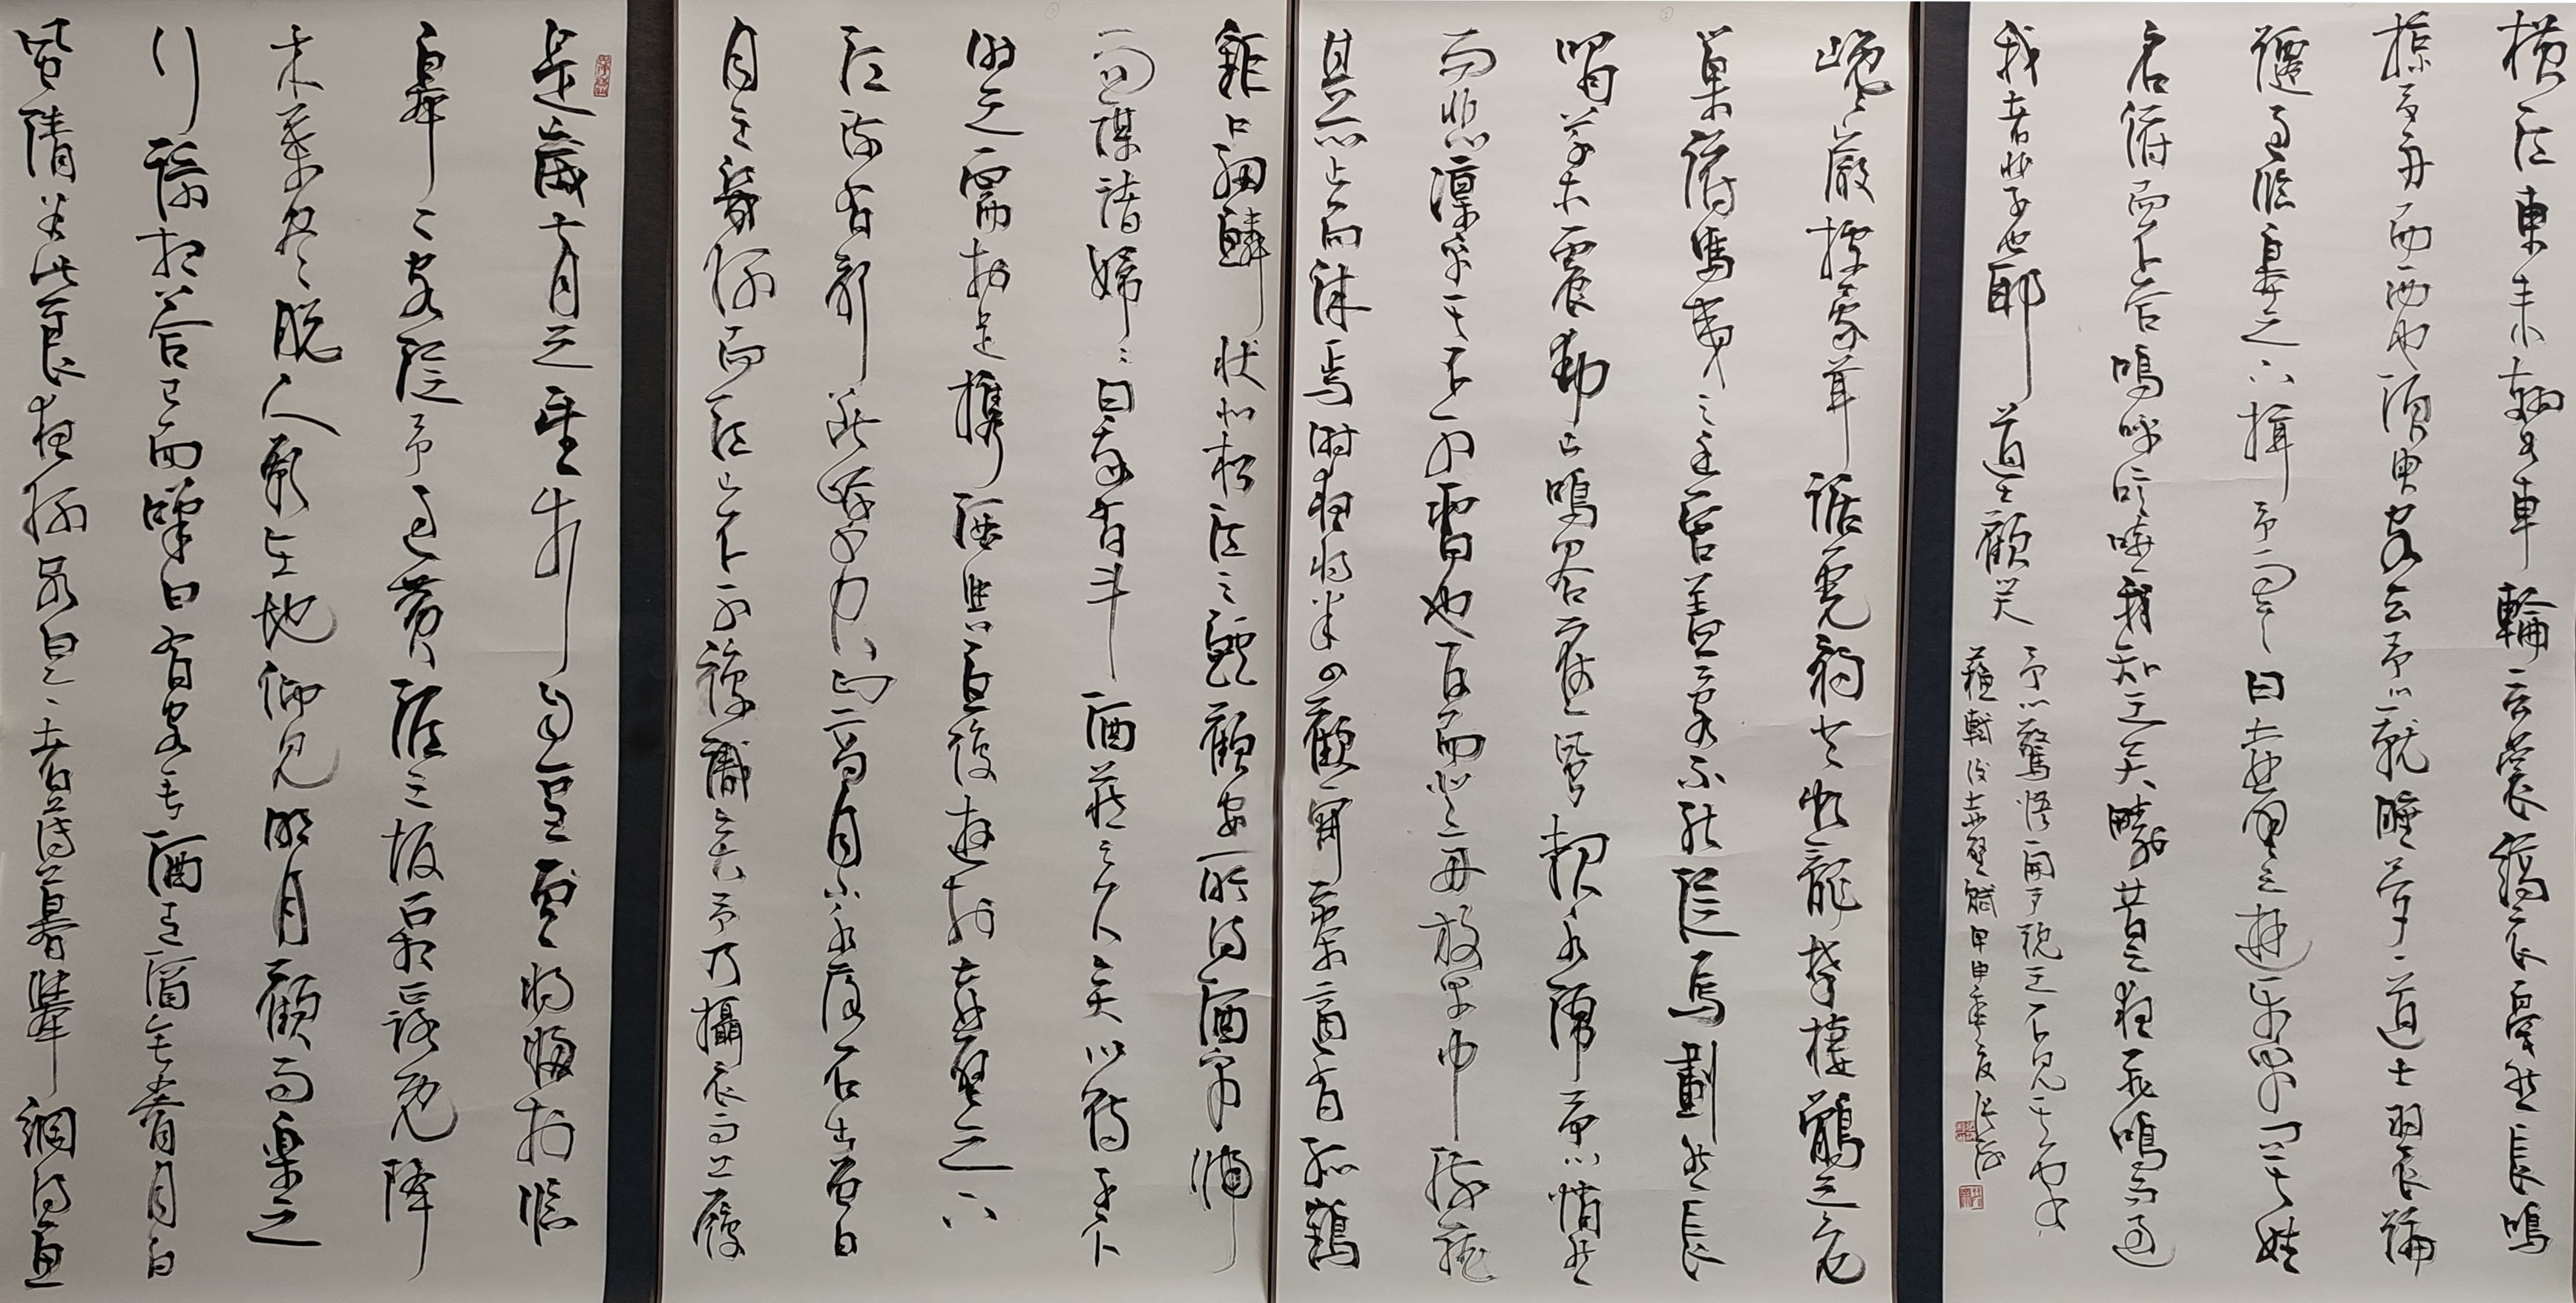 是歲十月之望步自雪堂將歸於臨
皋二客從予過黃泥之坂霜露既降
木葉盡脫人影在地仰見明月顧而樂之
行歌相答已而嘆曰有客無酒有酒無肴月白
風清如此良夜何客曰今者薄暮舉網得魚
巨口細鱗狀似松江之鱸顧安所得酒乎歸
而謀諸婦婦曰我有斗酒藏之久矣以待子不
時之需於是攜酒與魚復遊於赤壁之下
江流有聲斷岸千尺山高月小水落石出曾日
月之幾何而江山不可復識矣予乃攝衣而上履
巉巖披蒙茸踞虎豹登虬龍攀棲鶻之危
巢俯馮夷之幽宮蓋二客不能從焉劃然長
嘯草木震動山鳴谷應風起水涌予亦悄然
而悲凜乎其不可留也反而登舟放乎中流聽
其所止而休焉時夜將半四顧寂寥適有孤鶴
橫江東來翅如車輪玄裳縞衣戛然長鳴
掠予舟而西也須臾客去予亦就睡夢一道士羽衣蹁
躚過臨皋之下揖予而言曰赤壁之遊樂乎問其姓
名俯而不答嗚呼噫嘻我知之矣疇昔之夜飛鳴而過
我者非子也耶道士顧笑
予亦驚悟開戶視之不見其處
蘇軾後赤壁賦甲申季夏